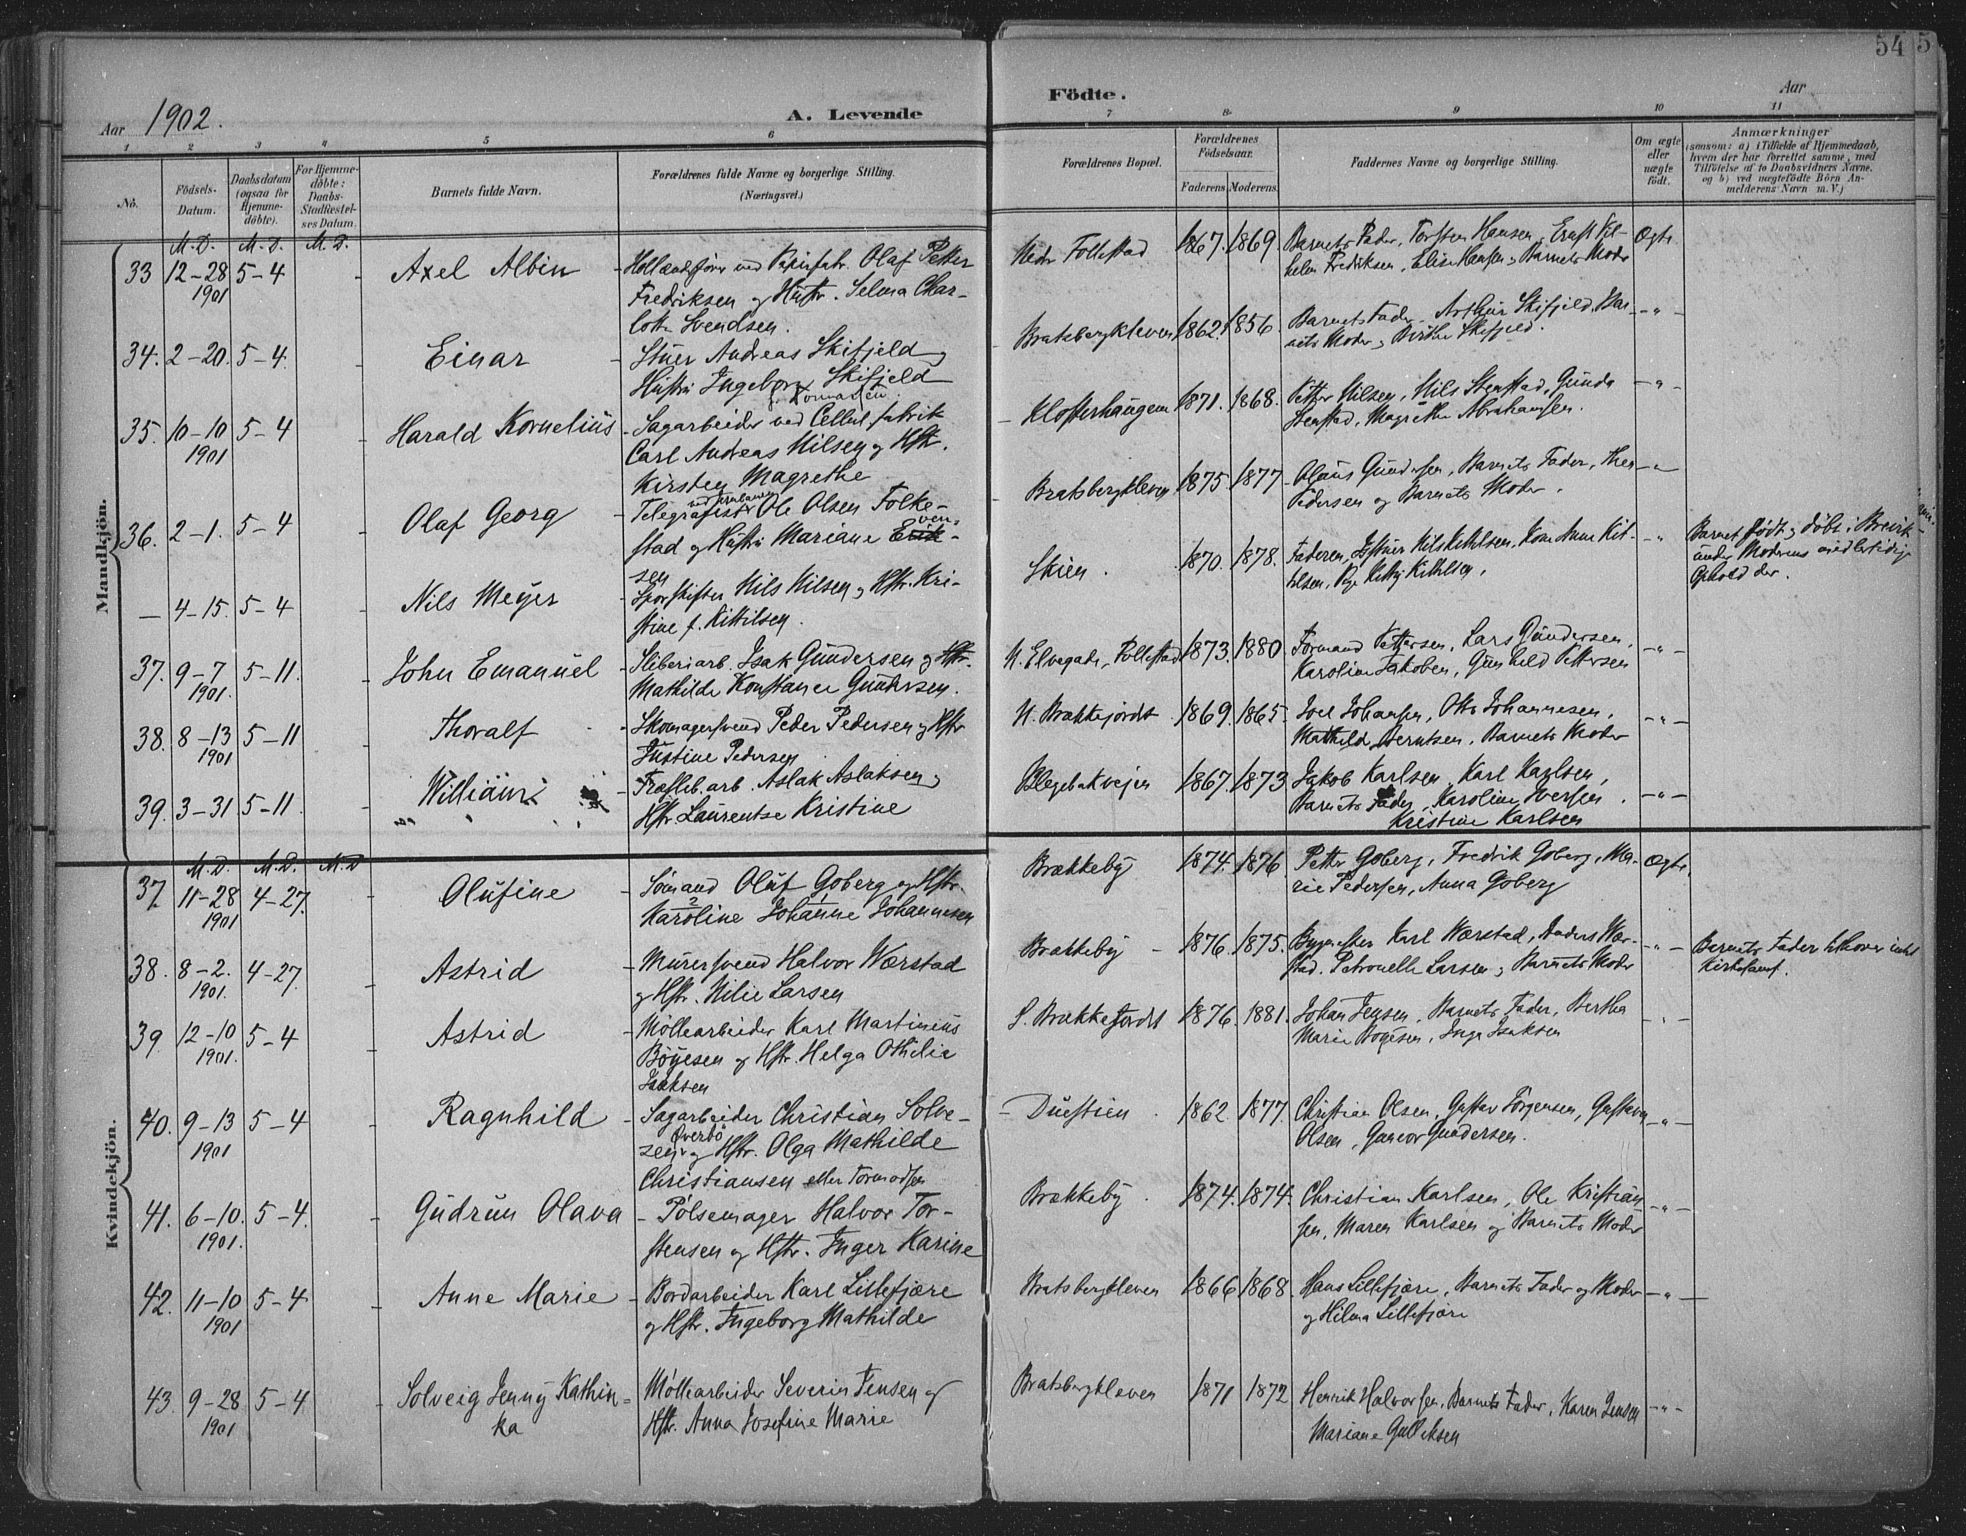 54 5
Aar 1902.
A. Levende
Födte.
Aar
1 2 3 4 5 6
7 8 9 10 11
No.
Födsels-Datum.
Daabsdatum (ogsaa for Hjemme-döbte).
For Hjemme-döbte: Daabs-Stadfæstelses Datum.
Barnets fulde Navn.
Forældrenes fulde Navne og borgerlige Stilling.
(Næringsvei.)
Forældrenes Bopæl.
Forældrenes Födselsaar.
Faderens. Moderens.
Faddernes Navne og borgerlige Stilling.
Om ægte eller uægte födt.
Anmærkninger
(saasom: a) i Tilfælde af Hjemmedaab, hvem der har forrettet samme, med Tilföielse af to Daabsvidners Navne, og b) ved uægtefödte Börn Anmelderens Navn m. V.)
Mandkjön.
M. D. M. D. M. D.
33 12-28 1901 5-4 Axel Albin - Hollandsfører ved Papirfabr. Olaf Petter
Fredriksen og Hustr. Selma Char-
lotte Svendsen.
Nedr Follestad 1867. 1869. Barnets Fader, Torsten Hansen, Ernst Vil-
helm Fredriksen, Elise Hansen, Barnets Moder Ægte
34. 2-20. 5-4. Einar - Stuer Andreas Skifjeld og
Hustru Ingeborg Skifjeld
Bratsbergkleven 1862. 1856 Barnets Fader - Arthur Skifjeld, Bar-
nets Moder, Birthe Skifjeld. - " -
35. 10-10 1901 5-4 Harald Kornelius - Sagarbeider ved Cellul. fabrik
Carl Andreas Nilsen og Hstr.
Kirsten Magrethe
- Klosterhaugen 1871. 1868. Petter Nilsen, Nils Stenstad, Gunda
Stenstad, Magrethe Abrahamsen. - " -
36. 2-1. 5-4 Olaf Georg - Telegrafist Ole Olsen Folke-
stad og Hustru Mariane Erik-
sen
- Bratsbergkleven 1875. 1877 - Olaus Gundersen, Barnets Fader, Thea
Pedersen og Barnets Moder. - " -
- 4-15. 5-4 Nils Meyer Sporskifter Nils Nilsen og Hstr. Kri-
stine f. Kittilsen.
Skien. 1870. 1878. Faderen, Nils Kittilsen, Kone Anne Kit-
tilsen, Pige Kitty Kittilsen. - " Barnet født og døbt i Brevik
under Moderens midlertidige
Ophold der.
37. 9-7 1901. 5-11. John Emanuel - Sliberiarb. Isak Gundersen og Hstr.
Mathilde Konstance Gundersen.
N. Elvegade, Follestad 1873. 1880 Formand Pettersen, Lars Gundersen,
Karoline Jakobsen, Gunhild Pettersen - " -
38. 8-13 1901 5-11 Thoralf - Skomagersvend Peder Pedersen og Hstr.
Justine Pedersen
N. Brækkejordet 1869. 1865. Joel Johansen, Otto Johannesen,
Mathilde Berntsen, Barnets Moder - " -
39. 3-31 5-11. William - Træslib. arb. Aslak Aslaksen og
Hstr Laurentse Kristine
Blegebakvejen 1867. 1873 Jakob Karlsen, Karl Karlsen,
Barnets Fader, Karoline Iversen.
Kristine Karlsen - " -
Kvindekjön.
M. D. M. D. M. D
37. 11-28 1901 4-27. Olufine - Sømand Oluf Goberg og Hstr.
Karoline Johanne Johannesen
Brækkeby 1874. 1876 Petter Goberg, Fredrik Goberg, Ma-
rie Pedersen, Anna Goberg Ægte.
38. 8-2. 1901. 4-27. Astrid - Murersvend Halvor Værstad
og Hstr. Nilie Larsen
Brækkeby - 1876. 1875. Karl Værstad, Anders Vær-
stad. Petronelle Larsen, Barnets Moder - " - Barnets Fader tilhører intet
Kirkesamf.
39. 12-10 1901. 5-4 Astrid - Møllearbeider Karl Martinius
Bøyesen og Hstr. Helga Othilia
Isaksen
S. Brækkejordet 1876. 1881. Johan Jensen, Barnets Fader, Bertha
Marie Bøyesen, Inga Isaksen - " -
40. 9-13 1901 5-4 Ragnhild - Sagarbeider Christian Solve-
sen Øverbø og Hstr. Olga Mathilde
Christiansen eller Tormodsen
- Duestien. 1862 1877. Christian Olsen, Gustav Jørgensen, Gustava
Olsen, Gunvor Gundersen. - " -
41. 6-10. 1901. 5-4. Gudrun Olava - Pølsemager Halvor Tor-
stensen og Hstr. Inger Karine
Brækkeby. 1874. 1874. Christian Karlsen, Ole Kristian-
sen, Maren Karlsen og Barnets Moder - " -
42. 11-10 1901 5-4 Anne Marie - Bordarbeider Karl Lillefjære
og Hstr. Ingeborg Mathilde
Bratsbergkleven 1866 1868. Hans Lillefjære, Barnets Fader og Moder
og Hilma Lillefjære - " -
43. 9-28 1901 5-4 Solveig Jenny Kathin-
ka Møllearbeider Severin Jensen og
Hstr. Anna Josefine Marie
Bratsbergkleven 1871 1872 Henrik Halvorsen, Barnets Fader, Karen Jensen
Mariane Gulliksen - " -